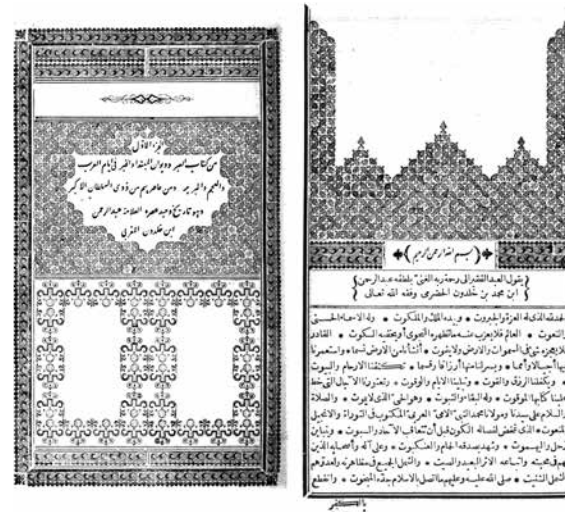 الجزء الاول
من كتاب العبر وديوان المبتدا والخبر فى ايام العرب
والعجم والبربر ومن عاصرهم من ذوى السلطان الاكبر
وهو تاريخ وحيد عصره العلامة عبدالرحمن
ابن خلدون المغربى
بسم الله الرحمن الرحيم
يقول العبد الفقير الى رحمة ربه الغنى بلطفه عبدالرحمن
ابن محمد بن خلدون الحضرمى وفقه الله تعالى
الحمد لله الذى له العزة والجبروت * وبيده الملك والملكوت * وله الاسماء الحسنى
والنعوت * العالم فلا يعزب عنه ما تظهره النجوى أو يخفيه السكوت * القادر
فلا يعجزه شئ فى السموات والارض ولا يفوت * أنشأنا من الارض نسما * واستعمرنا
فيها أجيالا وأمما * ويسر لنا منها أرزاقا وقسما * تكنفنا الارحام والبيوت
* ويكفلنا الرزق والقوت * وتبلينا الايام والوقوت * وتعتورنا الآجال التى خط
علينا كتابها الموقوت * وله البقاء والثبوت * وهو الحى الذى لا يموت * والصلاة
والسلام على سيدنا ومولانا محمد النبى الامى العربى المكتوب فى التوراة والانجيل
المنعوت * الذى تمخض لفصاله الكون قبل أن تتعاقب الآحاد والسبوت * وتباين
زحل واليهموت * وشهد بصدقه الحمام والعنكبوت * وعلى آله وأصحابه الذين
لهم فى محبته واتباعه الاثر البعيد والصيت * والشمل الجميع فى مظاهرته ولعدوهم
الشمل الشتيت * صلى الله عليه وعليهم ما اتصل بالاسلام جده المبخوت * وانقطع
بالكفر